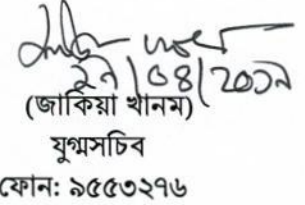 ২৭/০৪/২০১৭
(জাকিয়া খানম)
যুগ্মসচিব
ফোন: ৯৫৫৩২৭৬